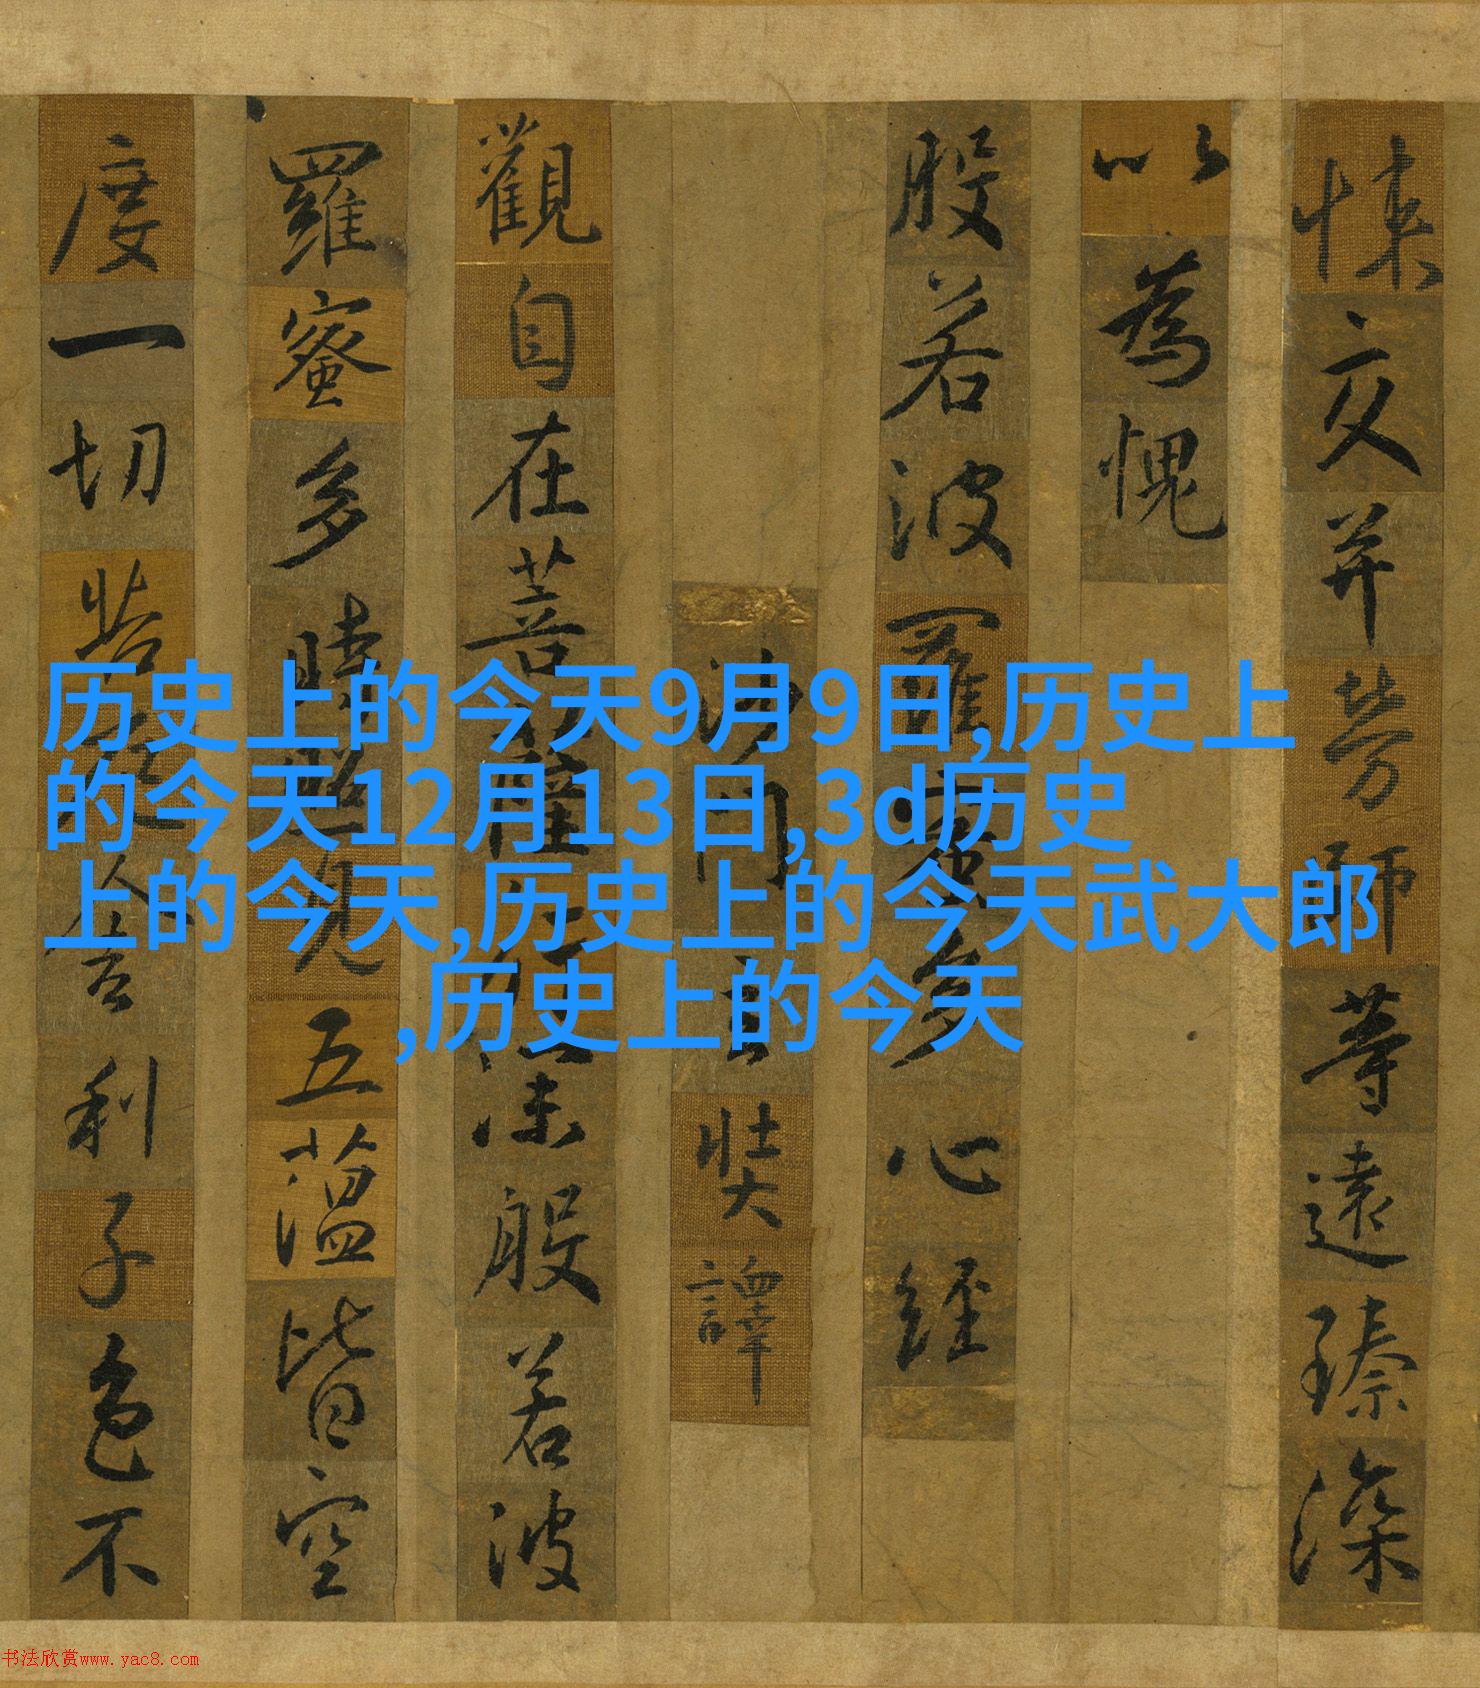 悚交并勞師等遠臻深
以為愧
般若波羅蜜多心經
沙門玄奘譯
觀自在菩薩行深般若波
羅蜜多時照見五蘊皆空
度一切苦厄舍利子色不
历史上的今天9月9日,历史上
的今天12月13日,3d历史
上的今天,历史上的今天武大郎
,历史上的今天
书法欣赏www.yac8.com